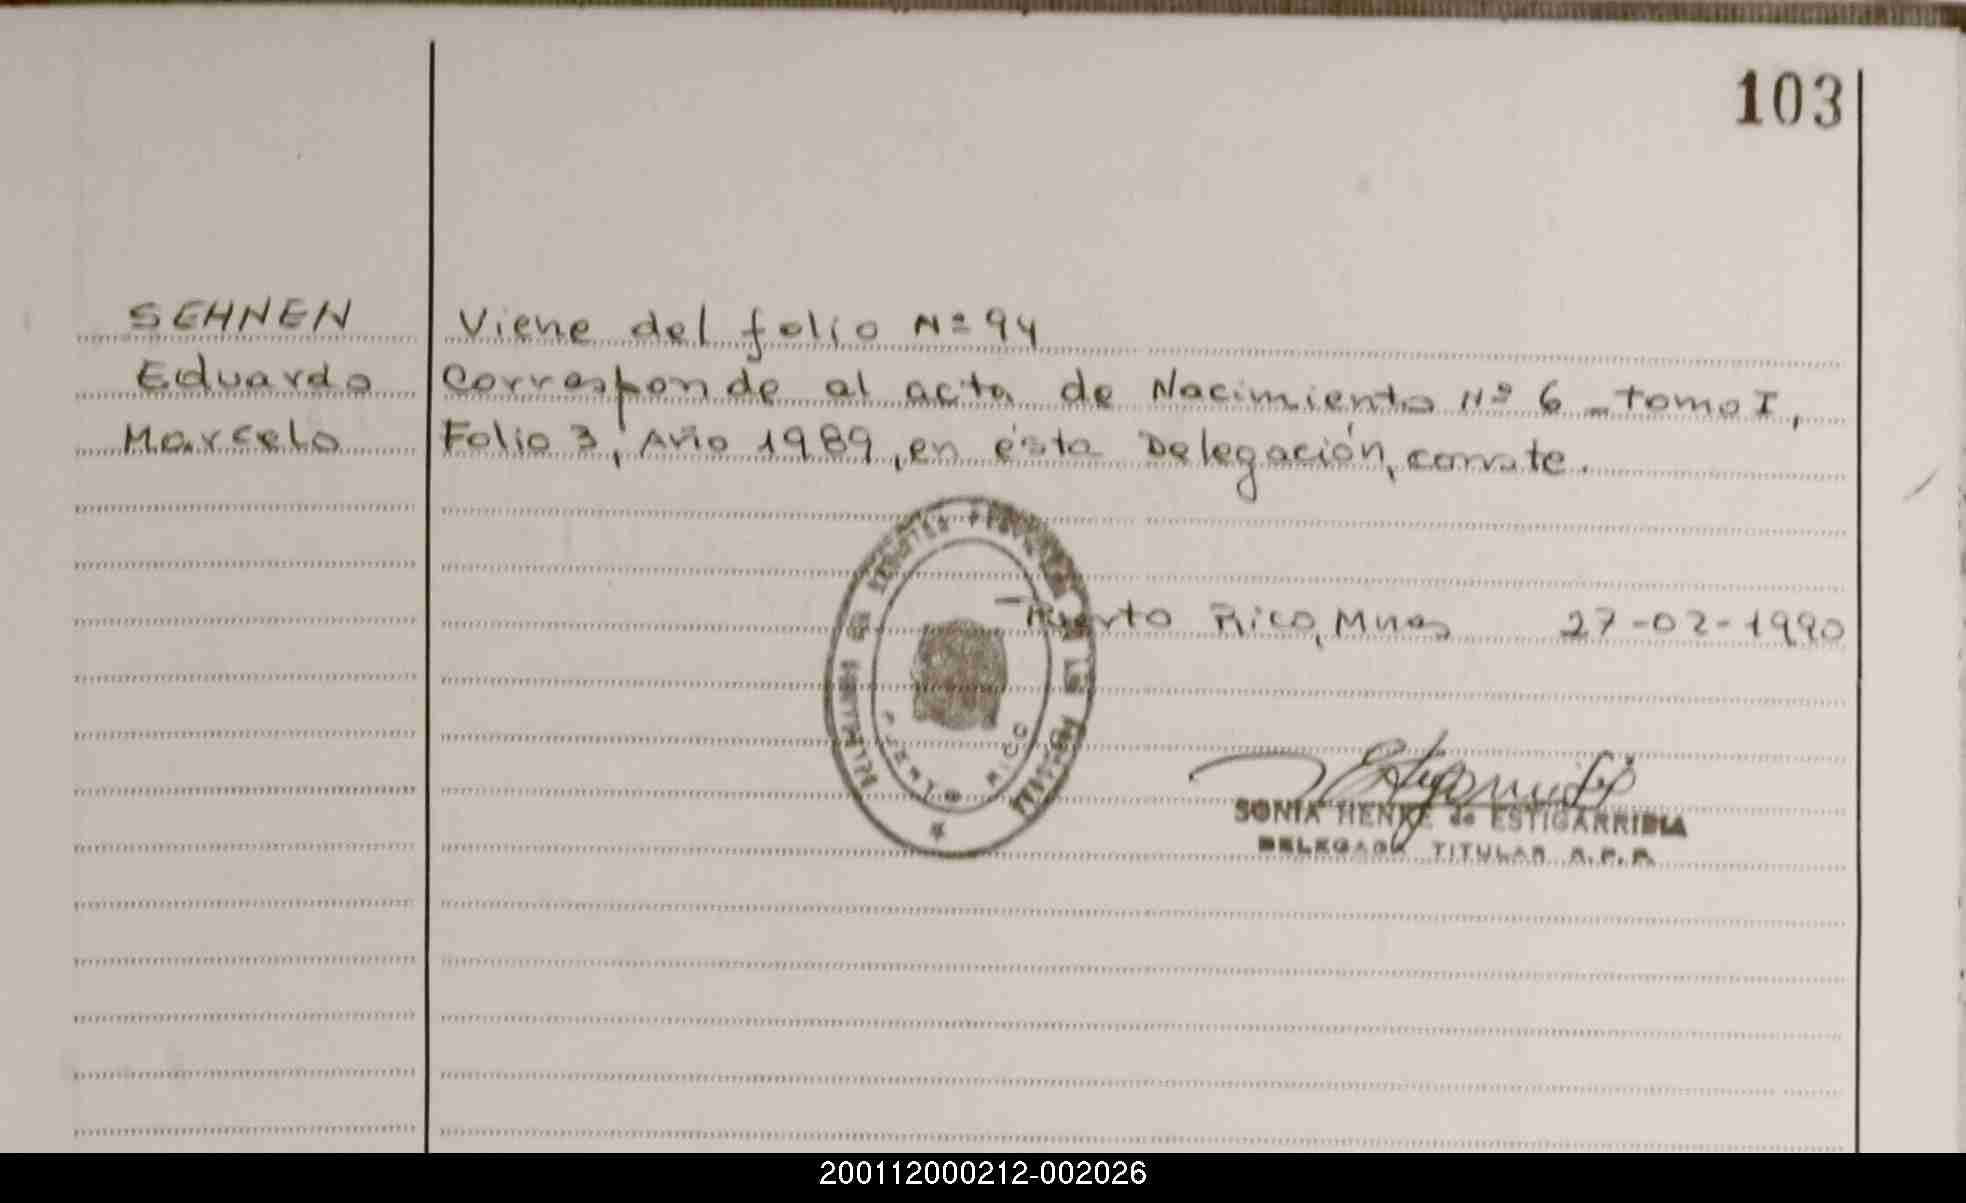 103
SEHNEN
Eduardo
Marcelo
Viene del folio Nº 94
Corresponde al acta de Nacimiento Nº 6 - tomo I,
Folio 3, Año 1989, en ésta Delegación, conste.
Puerto Rico, Mnes 27-02-1990
PUERTO RICO
SONIA HENKE de ESTIGARRIBIA
DELEGADA TITULAR R.P.P.
200112000212-002026